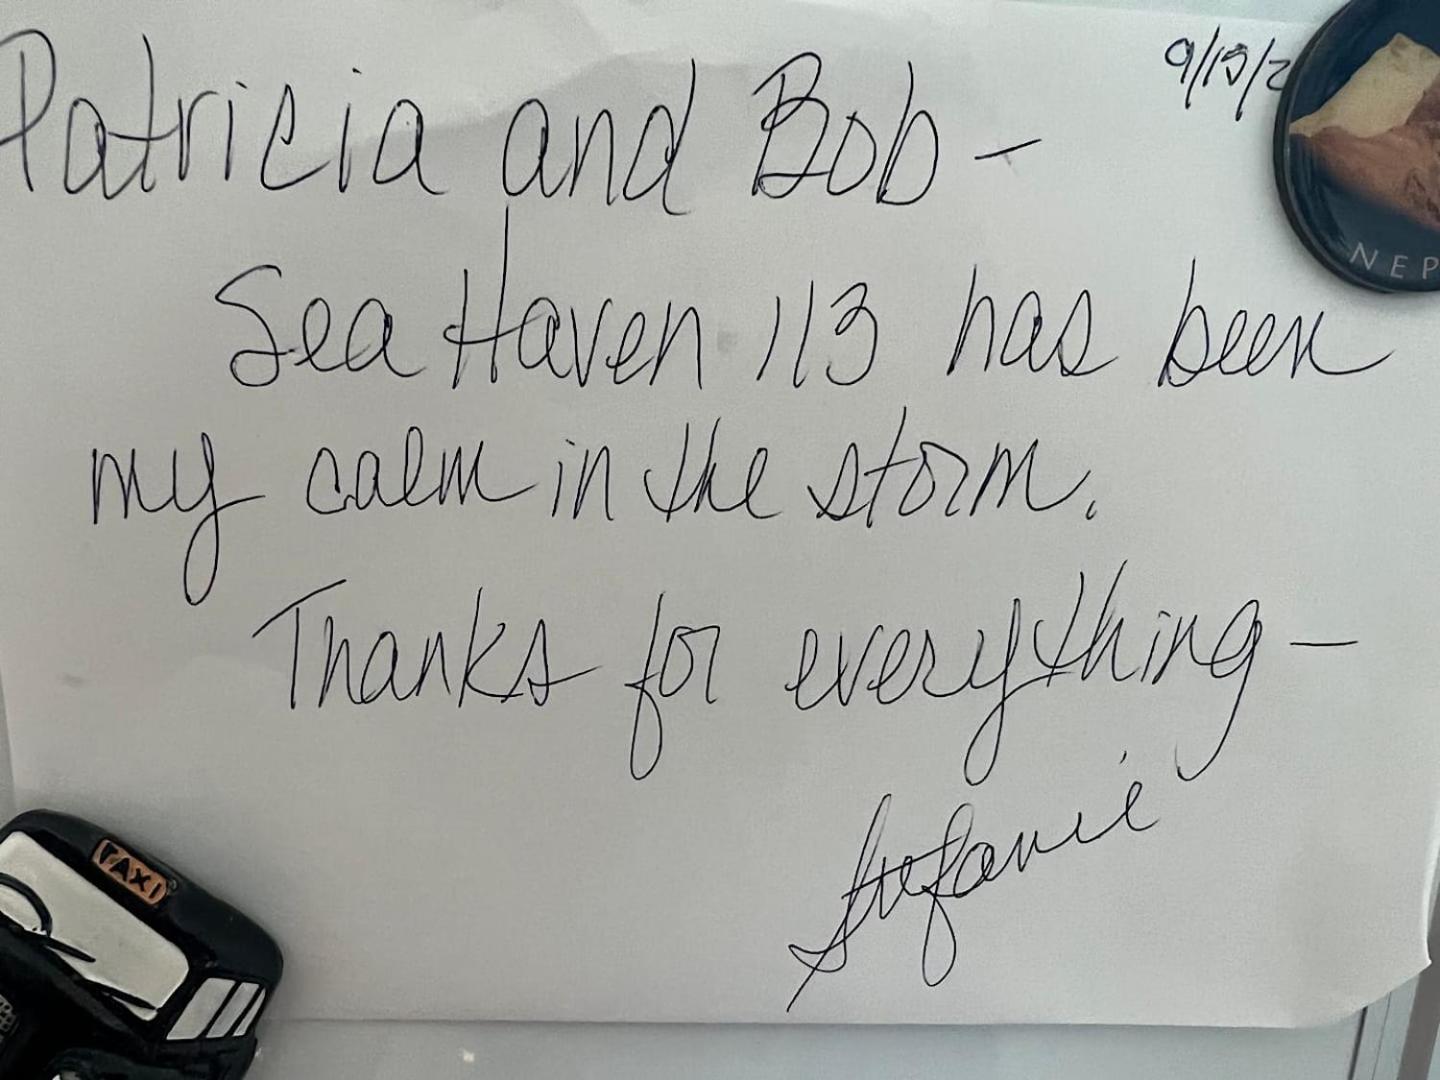 9/15/2
Patricia and Bob -
Sea Haven 113 has been
my calm in the storm.
Thanks for everything -
Stefanie
NEP
TAXI